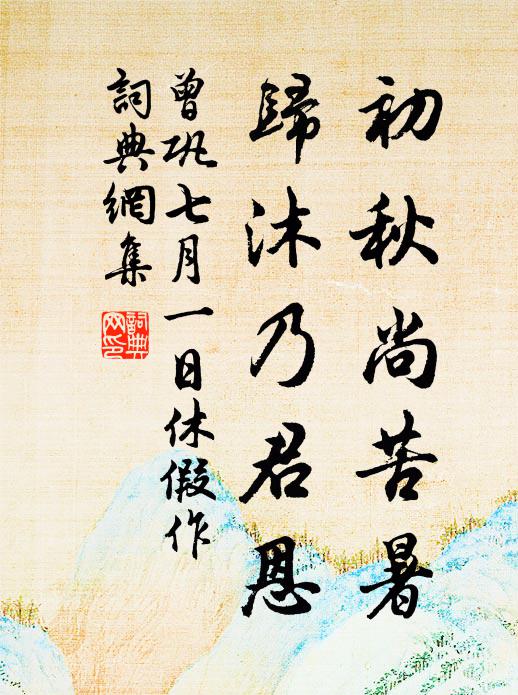 初秋尚苦暑
歸沐乃君恩
曾巩七月一日休假作
詞典網集
詞典
网印